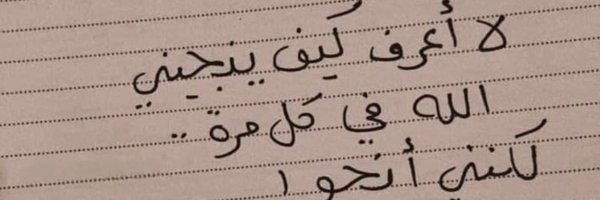 لا أعرف كيف ينجيني
الله في كل مرة ..
لكنني أنجوا